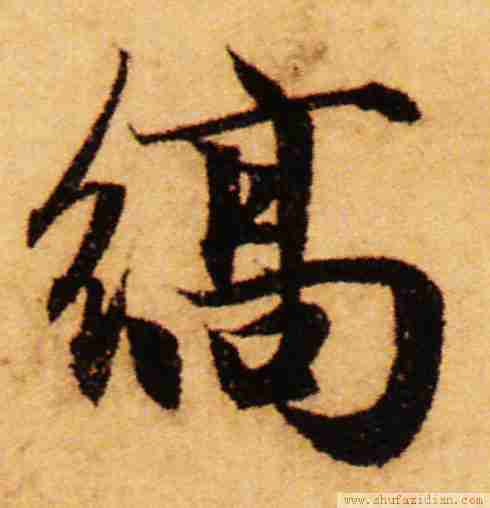 縞
www.shufazidian.com